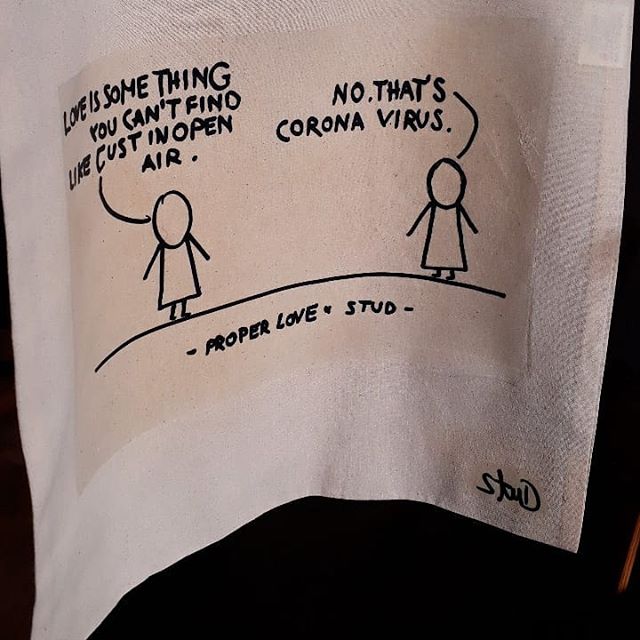 LOVE IS SOME THING
YOU CAN'T FIND
LIKE CUST IN OPEN
AIR.
NO. THAT'S
CORONA VIRUS.
- PROPER LOVE & STUD -